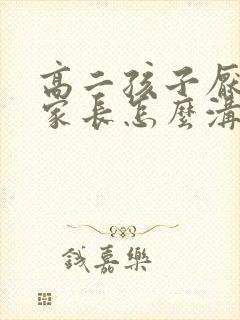 高二孩子厭
家長怎麼溝
錢嘉樂